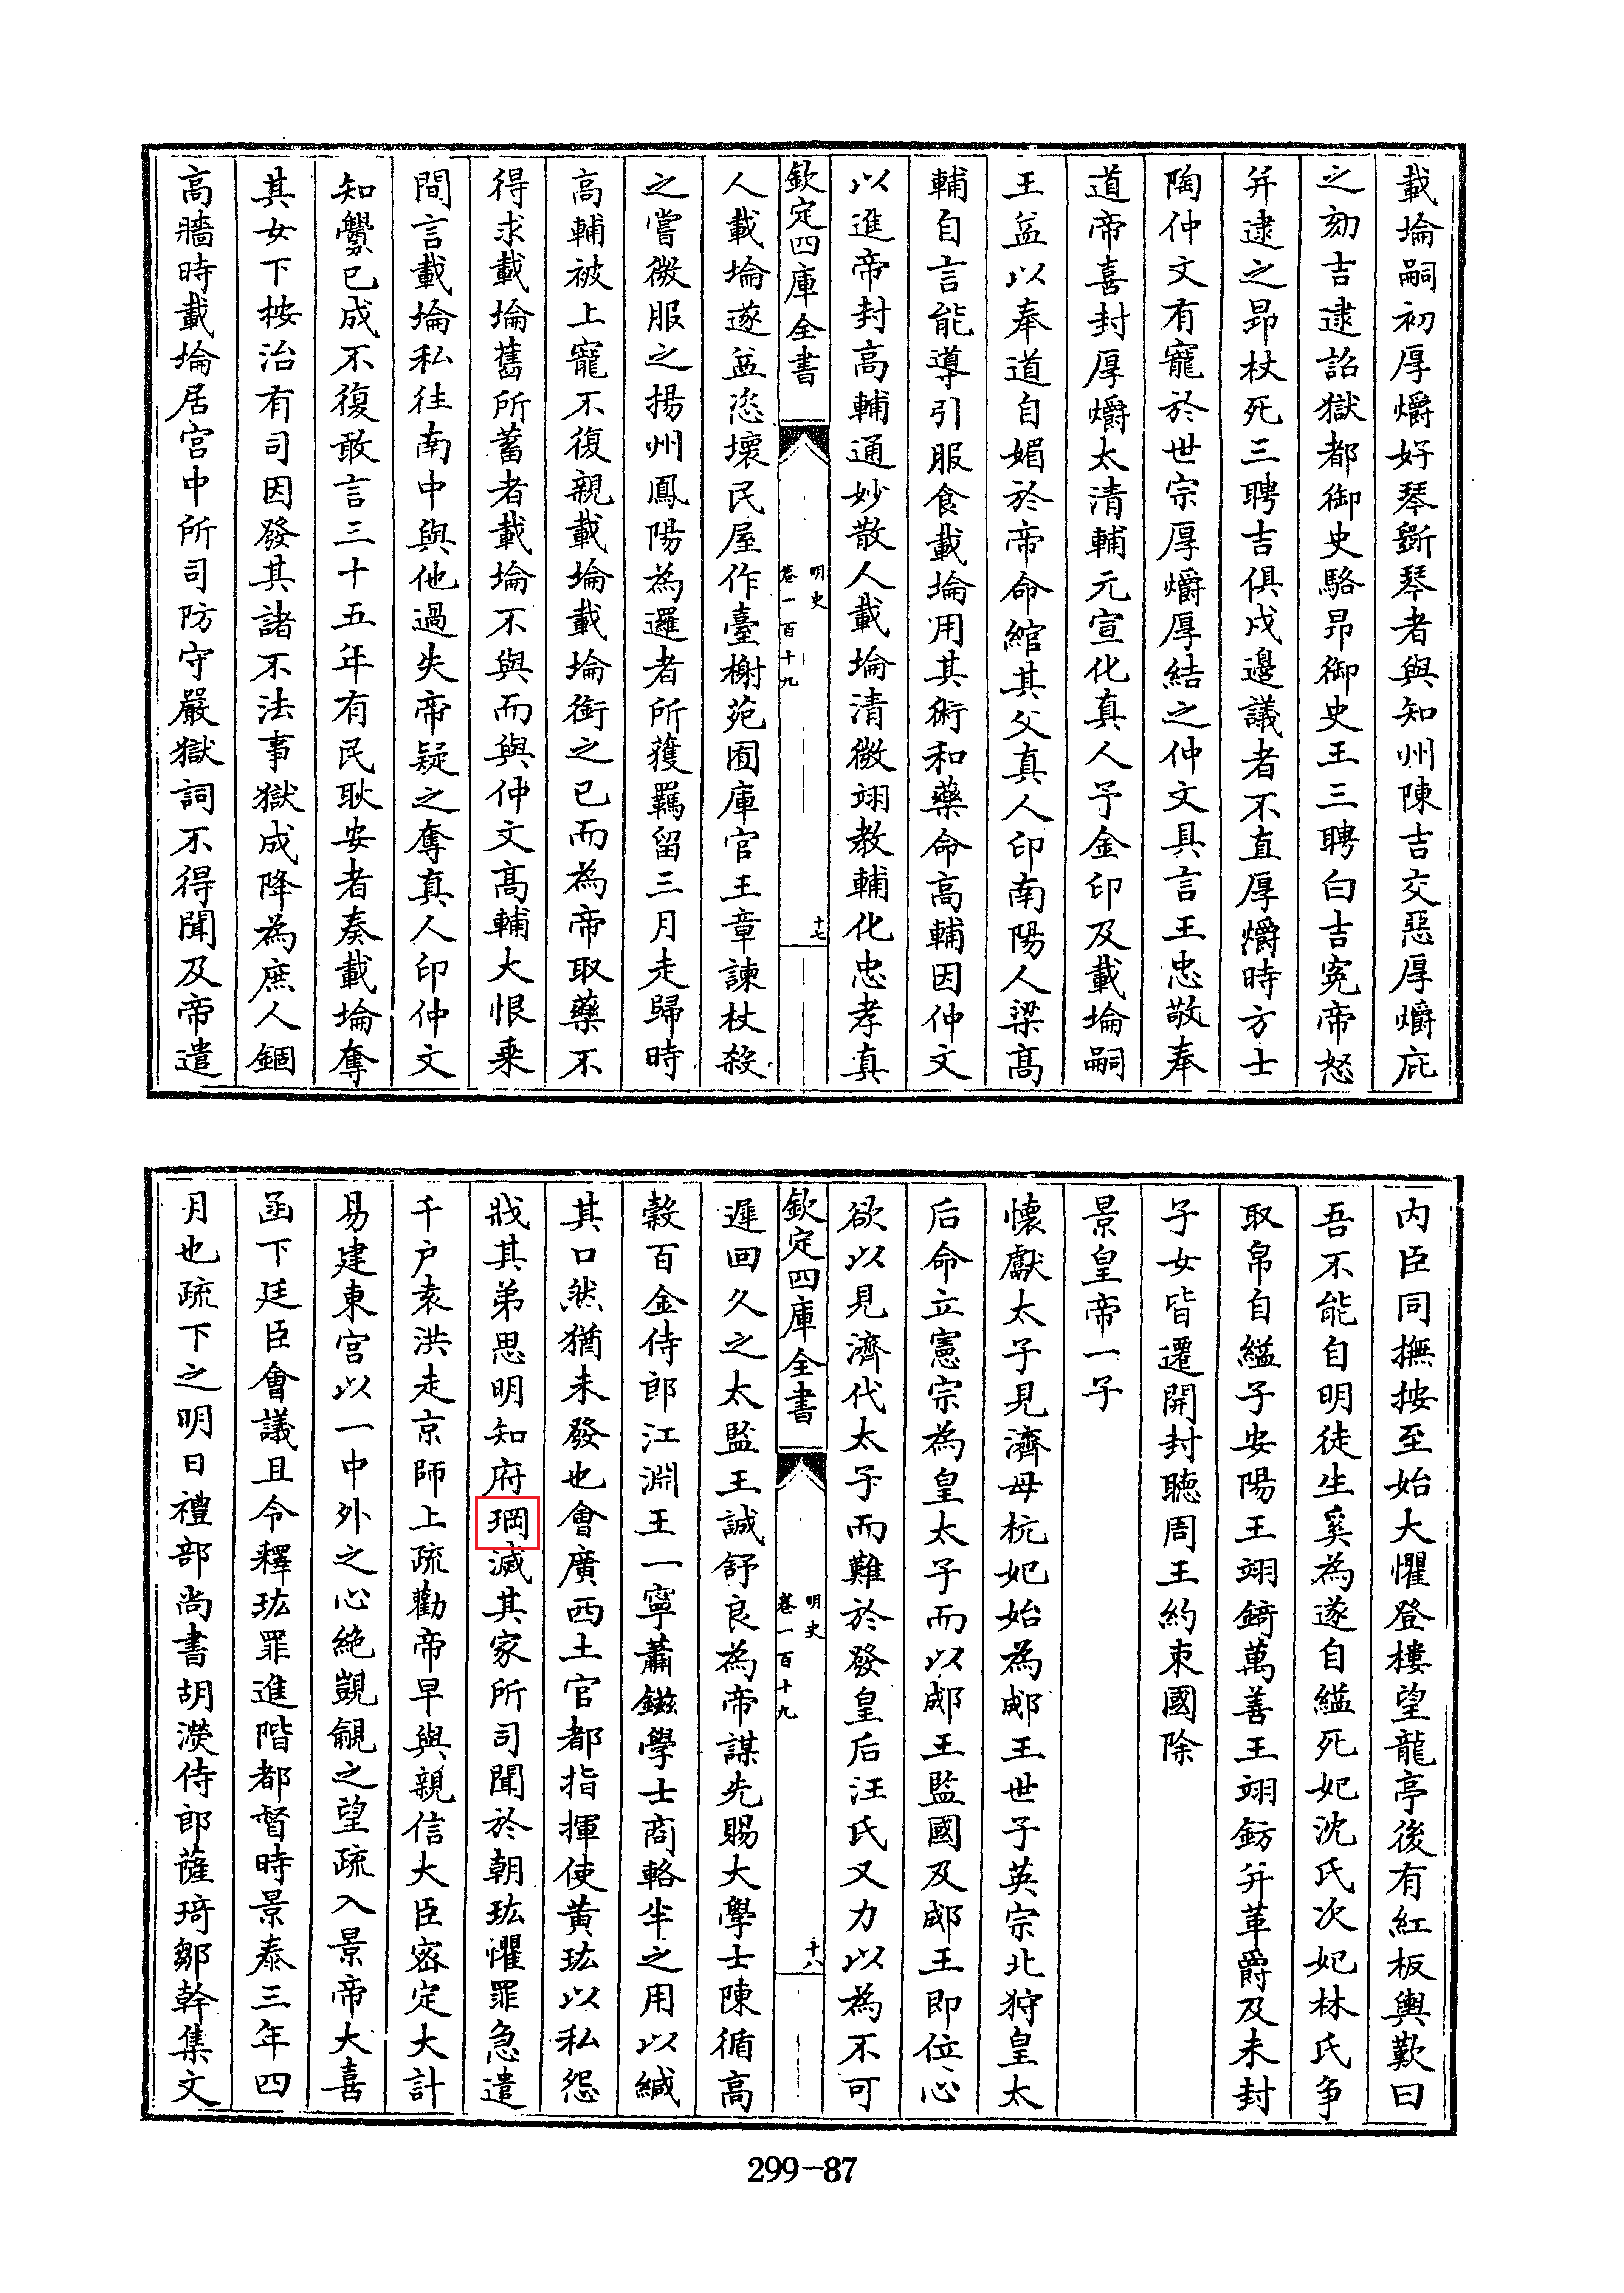 載埨嗣初厚爝好琴斵琴者與知州陳吉交惡厚爝庇
之劾吉逮詔獄都御史駱昂御史王三聘白吉寃帝怒
并逮之昂杖死三聘吉俱戍邊議者不直厚爝時方士
陶仲文有寵於世宗厚爝厚結之仲文具言王忠敬奉
道帝喜封厚爝太清輔元宣化真人予金印及載埨嗣
王益以奉道自媚於帝命綰其父真人印南陽人梁髙
輔自言能導引服食載埨用其術和藥命高輔因仲文
以進帝封高輔通妙散人載埨清微翊教輔化忠孝真
欽定四庫全書
明史
卷一百十九
十七
人載埨遂益恣壞民屋作臺榭苑囿庫官王章諫杖殺
之嘗微服之揚州鳳陽為邏者所獲羈留三月走歸時
高輔被上寵不復親載埨載埨銜之已而為帝取藥不
得求載埨舊所蓄者載埨不與而與仲文髙輔大恨乘
間言載埨私往南中與他過失帝疑之奪真人印仲文
知釁已成不復敢言三十五年有民耿安者奏載埨奪
其女下按治有司因發其諸不法事獄成降為庶人錮
高牆時載埨居宫中所司防守嚴獄詞不得聞及帝遣
内臣同撫按至始大懼登樓望龍亭後有紅板輿歎曰
吾不能自明徒生奚為遂自縊死妃沈氏次妃林氏争
取帛自縊子安陽王翊錡萬善王翊鈁并革爵及未封
子女皆遷開封聽周王約束國除
景皇帝一子
懷獻太子見濟母杭妃始為郕王世子英宗北狩皇太
后命立憲宗為皇太子而以郕王監國及郕王即位心
欲以見濟代太子而難於發皇后汪氏又力以為不可
欽定四庫全書
明史
卷一百十九
十八
遲回久之太監王誠舒良為帝謀先賜大學士陳循高
穀百金侍郎江淵王一寧蕭鎡學士商輅半之用以緘
其口然猶未發也會廣西土官都指揮使黄㺬以私怨
戕其弟思明知府㻏滅其家所司聞於朝㺬懼罪急遣
千户袁洪走京師上疏勸帝早與親信大臣宻定大計
易建東宫以一中外之心絶覬覦之望疏入景帝大喜
函下廷臣會議且令釋㺬罪進階都督時景泰三年四
月也疏下之明日禮部尚書胡濙侍郎薩琦鄒幹集文
299-87